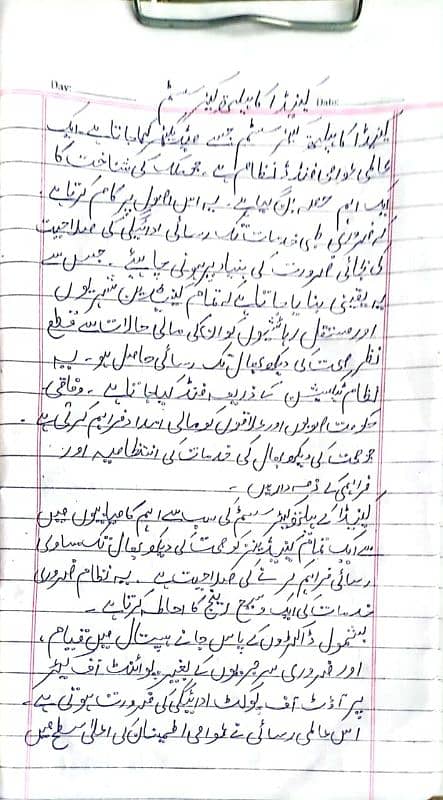 Day:
Date:
کینیڈا کا ہیلتھ کیئر سسٹم
کینیڈا کا ہیلتھ کیئر سسٹم جسے میڈیکیئر کہا جاتا ہے۔ ایک
عالمی عوامی فنڈڈ نظام ہے۔ جو ملک کی شناخت کا
ایک اہم حصہ بن گیا ہے۔ یہ اس اصول پر کام کرتا ہے
کہ ضروری طبی خدمات تک رسائی ادائیگی کی صلاحیت
کی بجائے ضرورت کی بنیاد پر ہونی چاہیئے۔ جس سے
یہ یقینی بنایا جاتا ہے کہ تمام کینیڈین شہریوں
اور مستقل رہائشیوں کو ان کی مالی حالات سے قطع
نظر صحت کی دیکھ بھال تک رسائی حاصل ہو۔ یہ
نظام ٹیکسیشن کے ذریعہ فنڈ کیا جاتا ہے۔ وفاقی
حکومت صوبوں اور علاقوں کو مالی امداد فراہم کرتی ہے۔
جو صحت کی دیکھ بھال کی خدمات کی انتظامیہ اور
فراہمی کے ذمہ دار ہیں۔
کینیڈا کے ہیلتھ کیئر سسٹم کی سب سے اہم کامیابیوں میں
سے ایک تمام کینیڈینز کو صحت کی دیکھ بھال تک مساوی
رسائی فراہم کرنے کی صلاحیت ہے۔ یہ نظام ضروری
خدمات کی ایک وسیع رینج کا احاطہ کرتا ہے۔
بشمول ڈاکٹروں کے پاس جانے ہسپتال میں قیام،
اور ضروری سرجریوں کے بغیر پوائنٹ آف کیئر
پر آؤٹ آف پوکٹ ادائیگی کی ضرورت ہوتی ہے۔
اس عالمی رسائی نے عوامی اطمینان کی اعلیٰ سطح میں